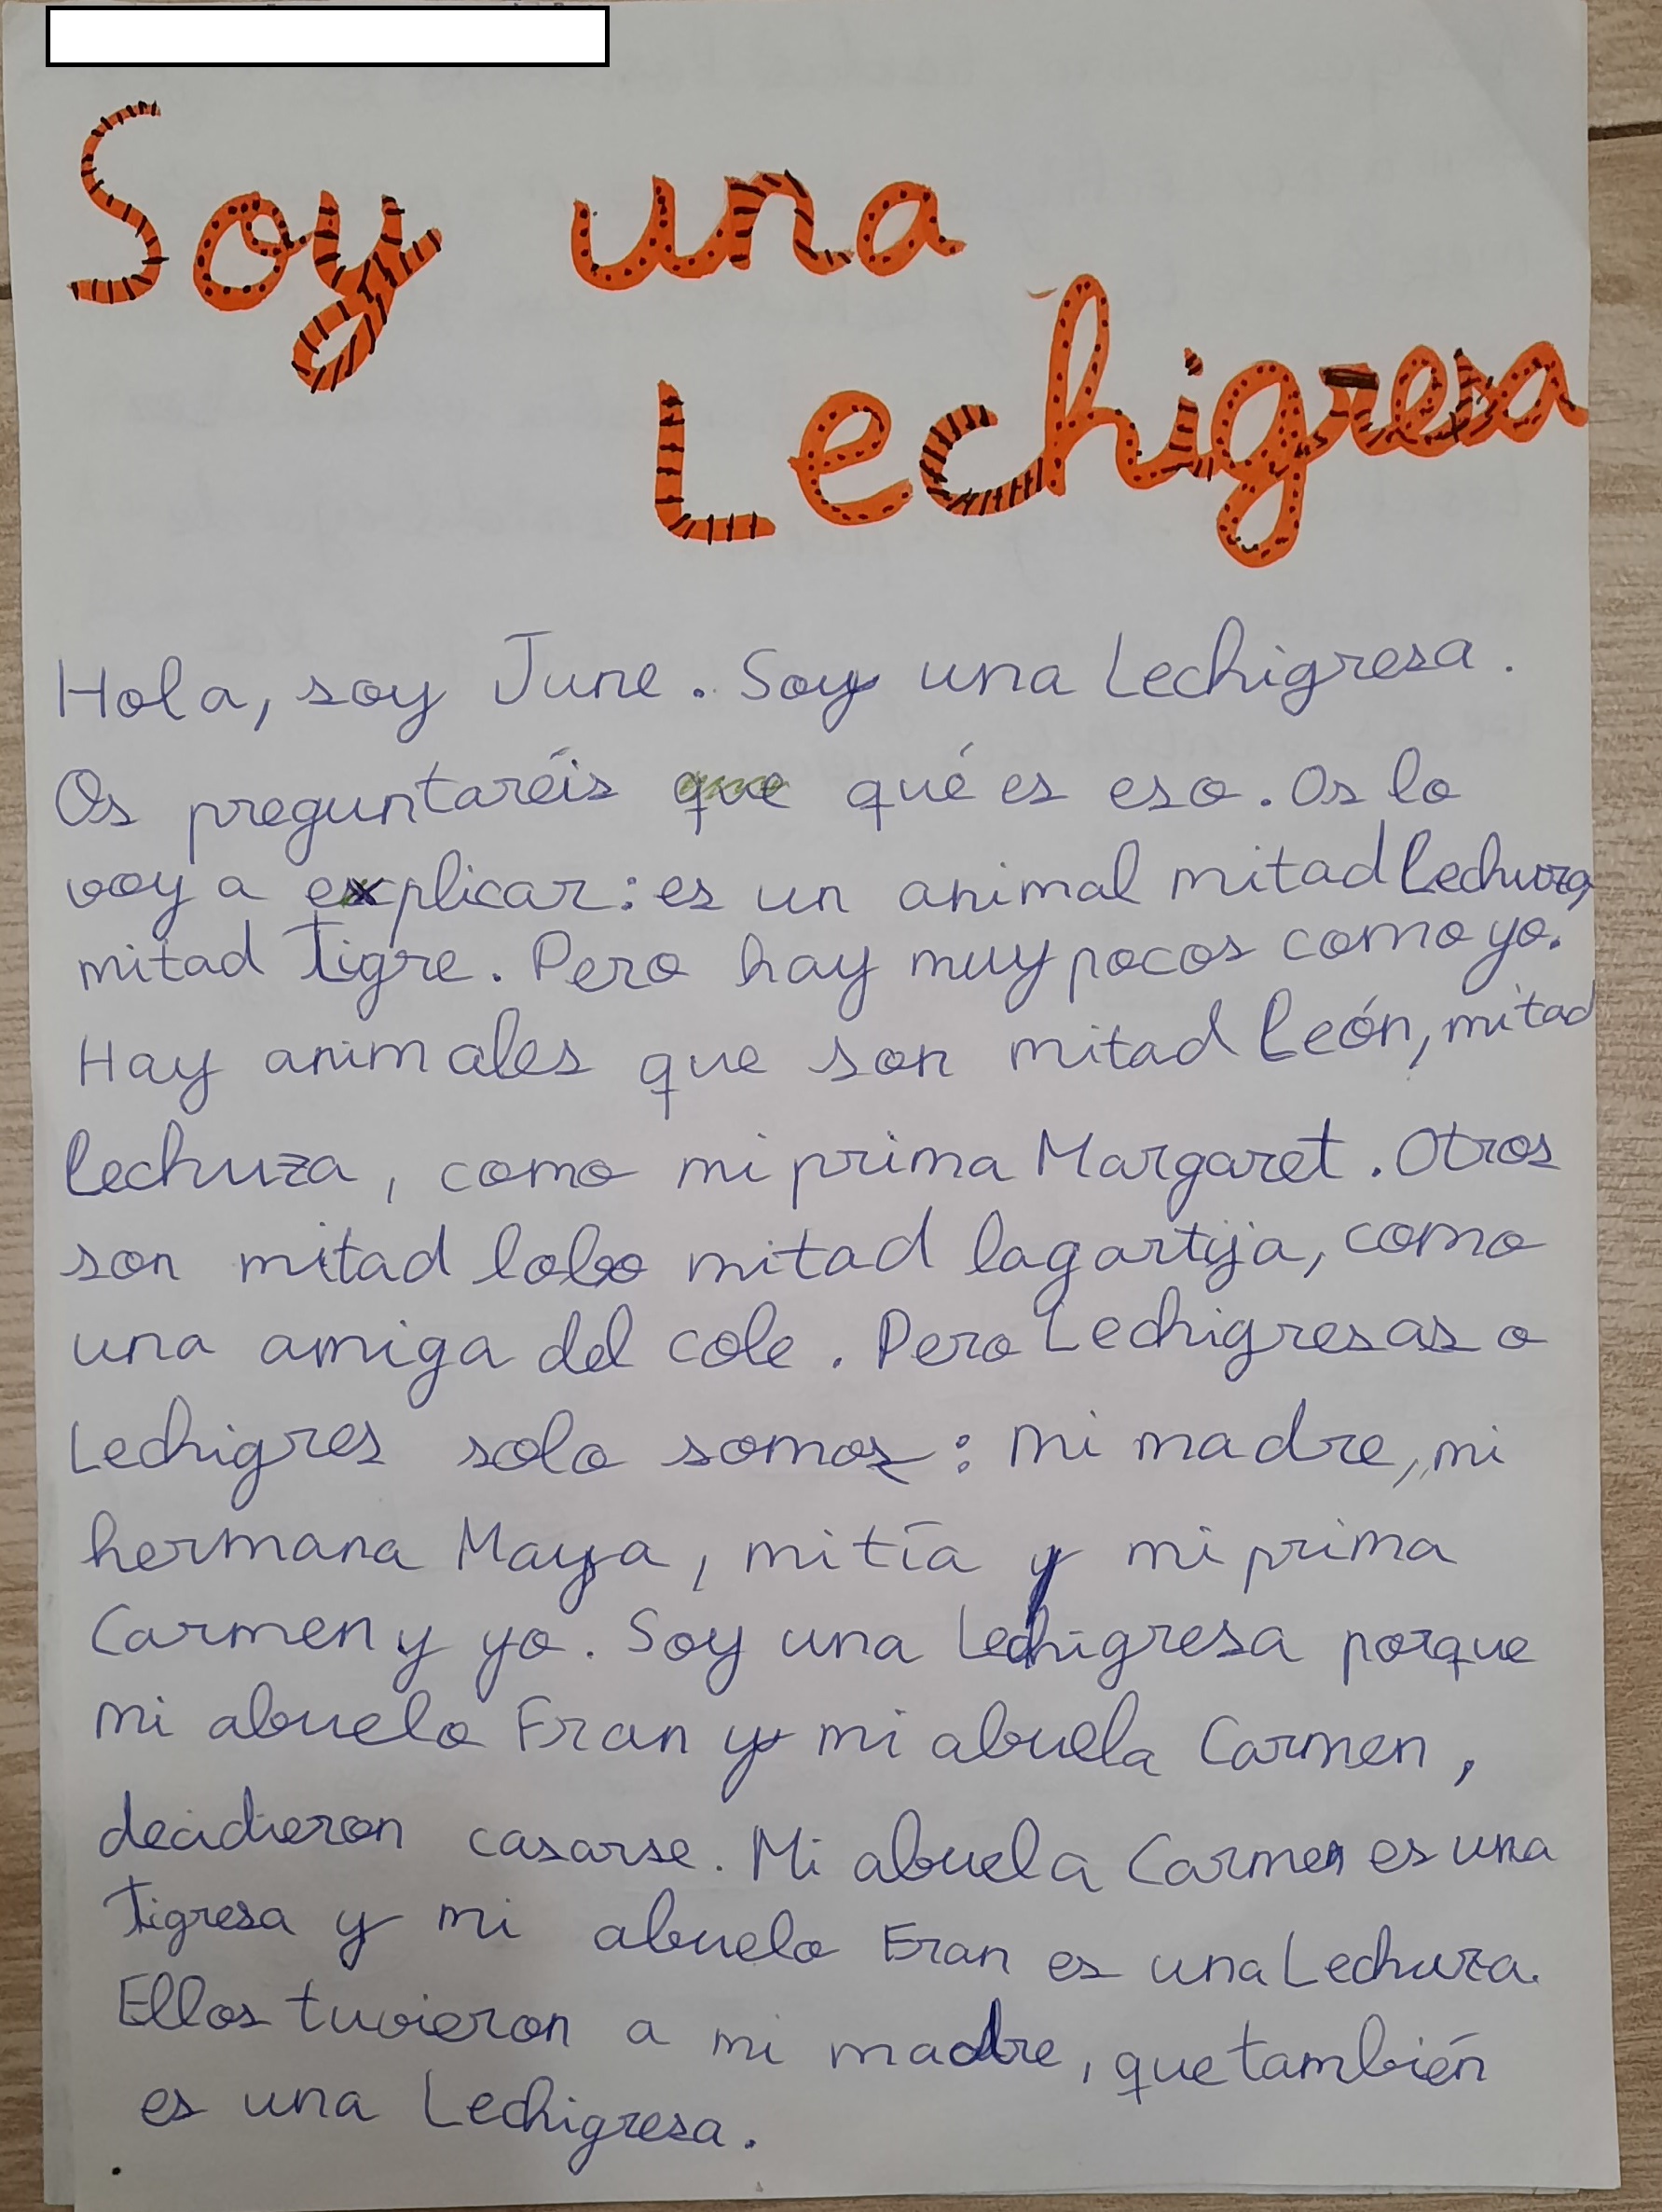 Soy una
Lechigresa
Hola, soy June. Soy una Lechigresa.
Os preguntaréis que qué es eso. Os lo
voy a explicar: es un animal mitad lechuza,
mitad Tigre. Pero hay muy pocos como yo.
Hay animales que son mitad león, mitad
lechuza, como mi prima Margaret. Otros
son mitad lobo mitad lagartija, como
una amiga del cole. Pero Lechigresas o
Lechigres solo somos: mi madre, mi
hermana Maya, mi tía y mi prima
Carmen y yo. Soy una Lechigresa porque
mi abuelo Fran y mi abuela Carmen,
decidieron casarse. Mi abuela Carmen es una
Tigresa y mi abuelo Fran es una Lechuza.
Ellos tuvieron a mi madre, que también
es una Lechigresa.